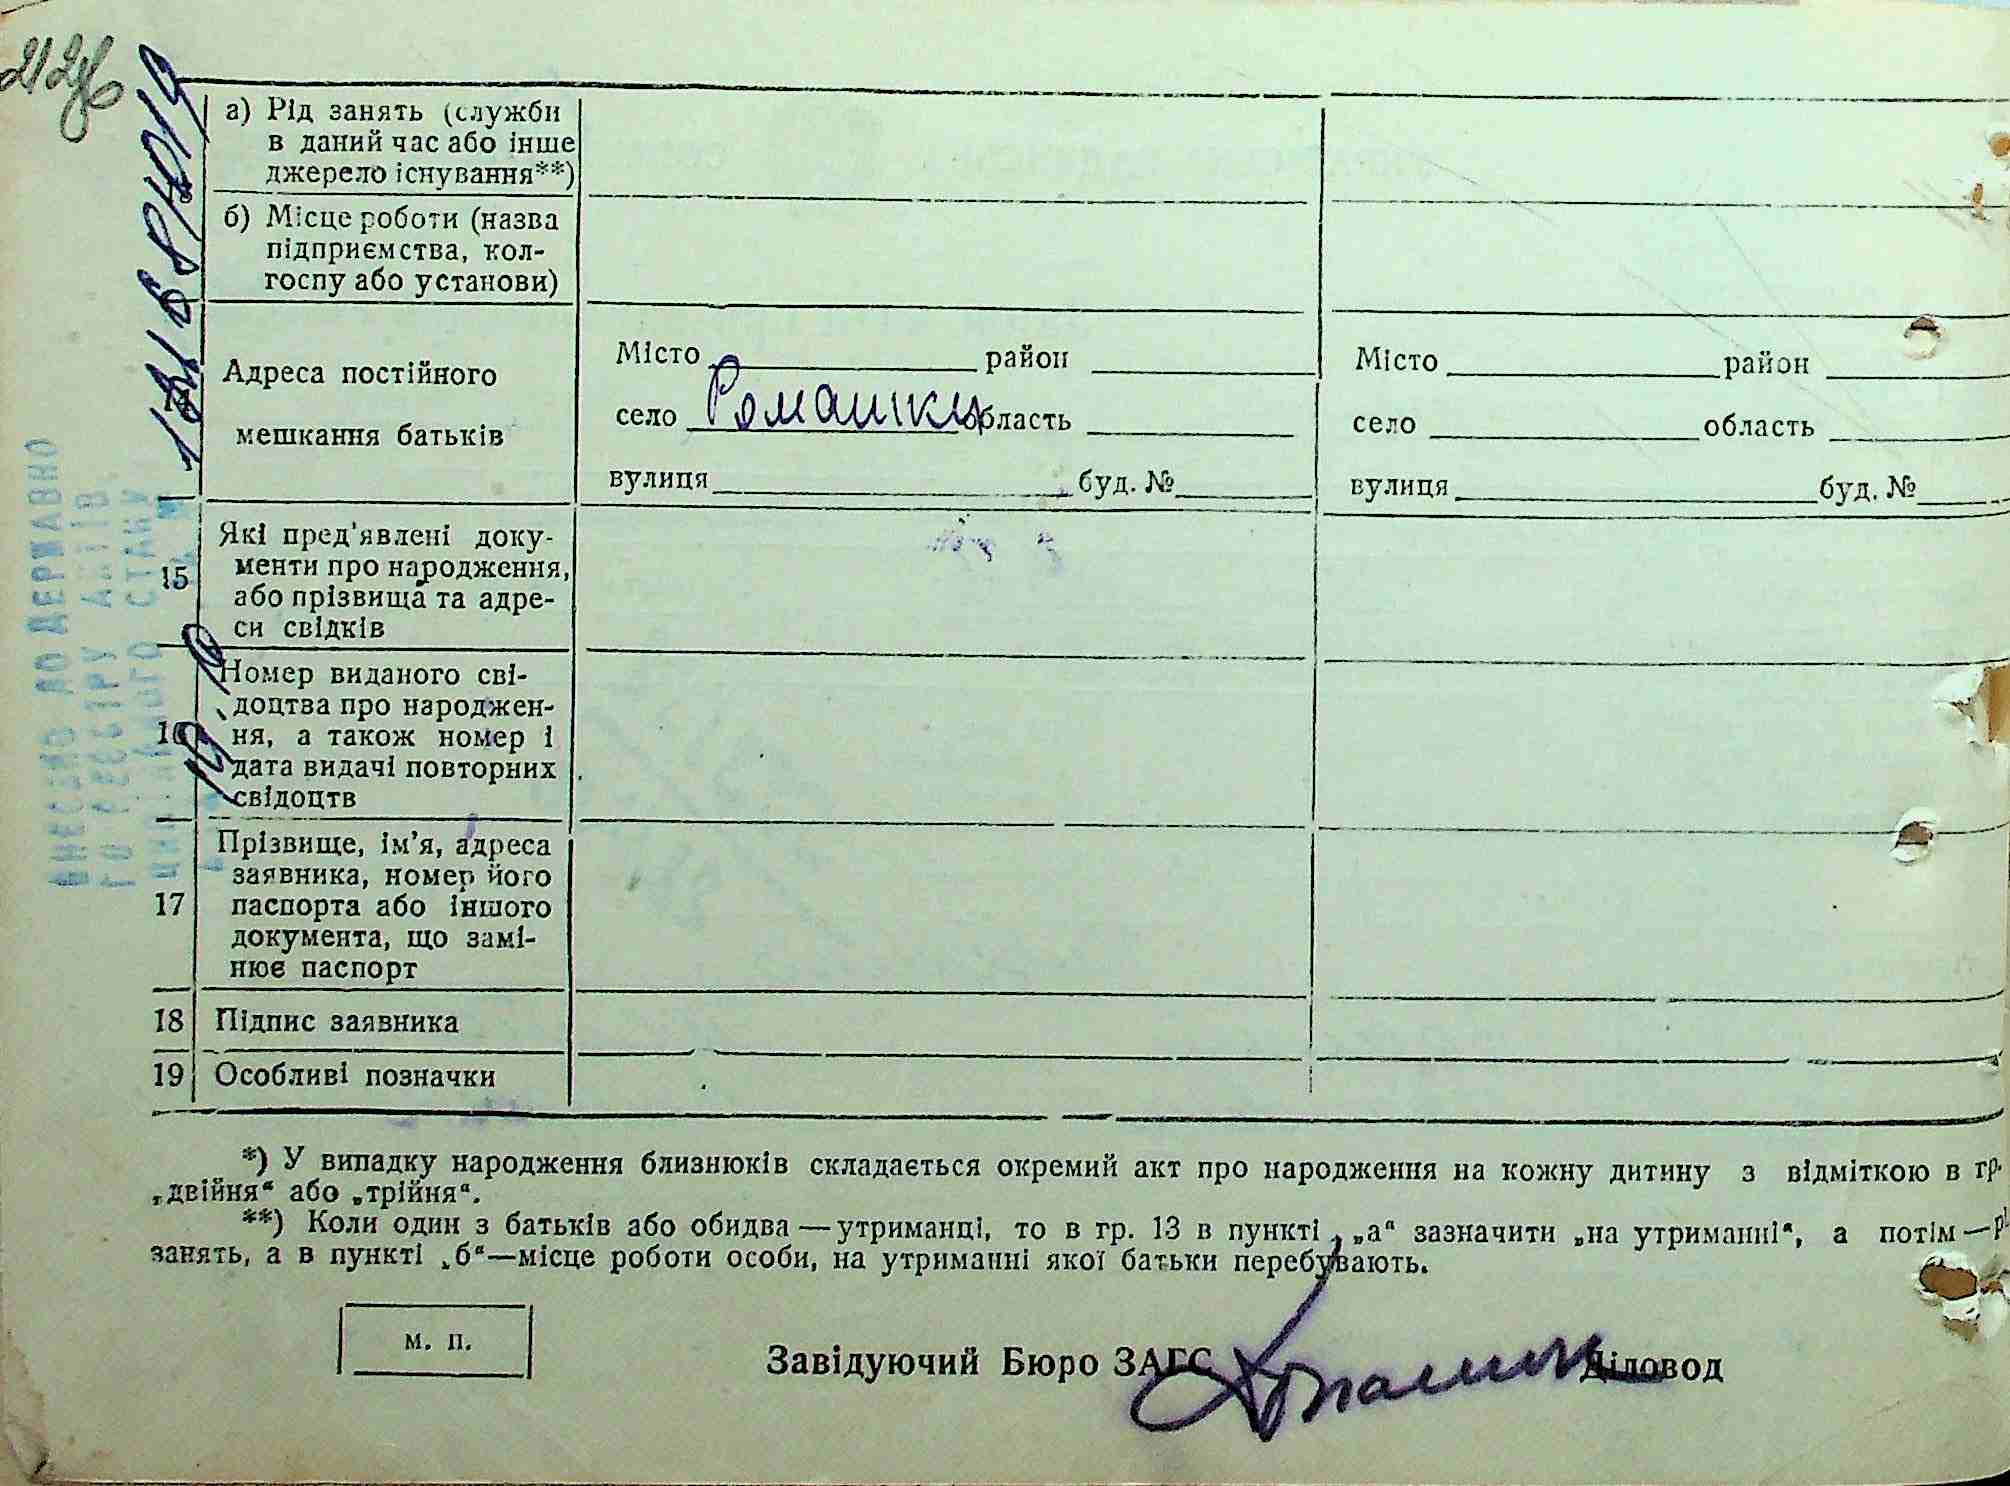 212зв
а) Рід занять (служби
в даний час або інше
джерело існування**)
б) Місце роботи (назва
підприємства, кол-
госпу або установи)
Адреса постійного
мешкання батьків
Місто район
село Ромашки область
вулиця буд. №
Місто район
село область
вулиця буд. №
15 Які пред'явлені доку-
менти про народження,
або прізвища та адре-
си свідків
16 Номер виданого сві-
доцтва про народжен-
ня, а також номер і
дата видачі повторних
свідоцтв
17 Прізвище, ім'я, адреса
заявника, номер його
паспорта або іншого
документа, що замі-
нює паспорт
18 Підпис заявника
19 Особливі позначки
*) У випадку народження близнюків складається окремий акт про народження на кожну дитину з відміткою в гр.
„двійня“ або „трійня“.
**) Коли один з батьків або обидва — утриманці, то в гр. 13 в пункті „а“ зазначити „на утриманні“, а потім —
занять, а в пункті „б“—місце роботи особи, на утриманні якої батьки перебувають.
м. п.
Завідуючий Бюро ЗАГС Діловод
ВНЕСЕНО ДО ДЕРЖАВНО
ГО РЕЄСТРУ АКТІВ
ЦИВІЛЬНОГО СТАНУ